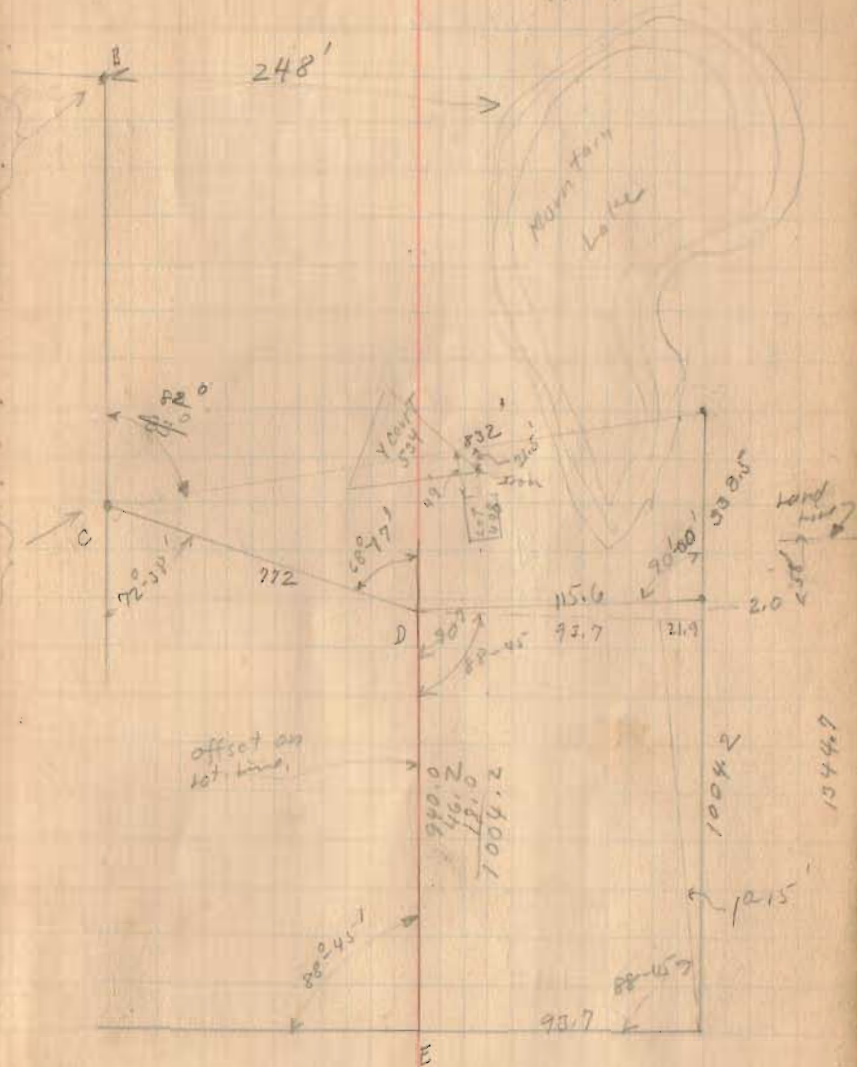 B
248'
Mountain
Lake
82°
832'
21.5'
49'
338.5
C
72°-38'
772
68°-47'
90°00'
115.6
2.0
D
90°
93.7
21.9
88-45
offset on
Lot. Line.
940.0
46.2
18.0
1004.2
1004.2
1344.7
88°-45'
88-45
93.7
E